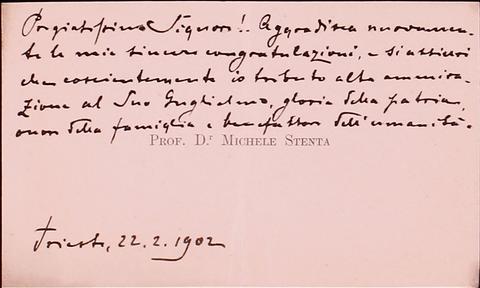 Pregiatissimo Signore! Aggradisca nuovamen-
te le mie sincere congratulazioni, e si assicuri
che coscientemente io tributo alta ammira-
zione al Suo Guglielmo, gloria della patria,
onor della famiglia e benefattor dell'umanità.
PROF. D.r MICHELE STENTA
Trieste, 22.2.1902